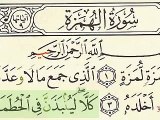 سُورَةُ الْهُمَزَةِ
اللَّهِ الرَّحْمَٰنِ الرَّحِيمِ
لُّمَزَةٍ ١ الَّذِي جَمَعَ مَالًا وَعَدَّ
أَخْلَدَهُ ٣ كَلَّا لَيُنبَذَنَّ فِي الْحُطَمَ